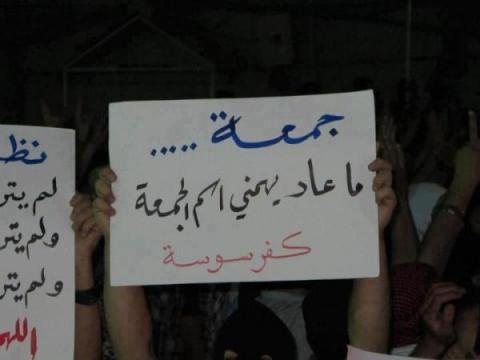 جمعة .....
ما عاد يهمني اسم الجمعة
كفرسوسة
نظ
لم يتر
ولم يتر
ولم يتر
اللهم